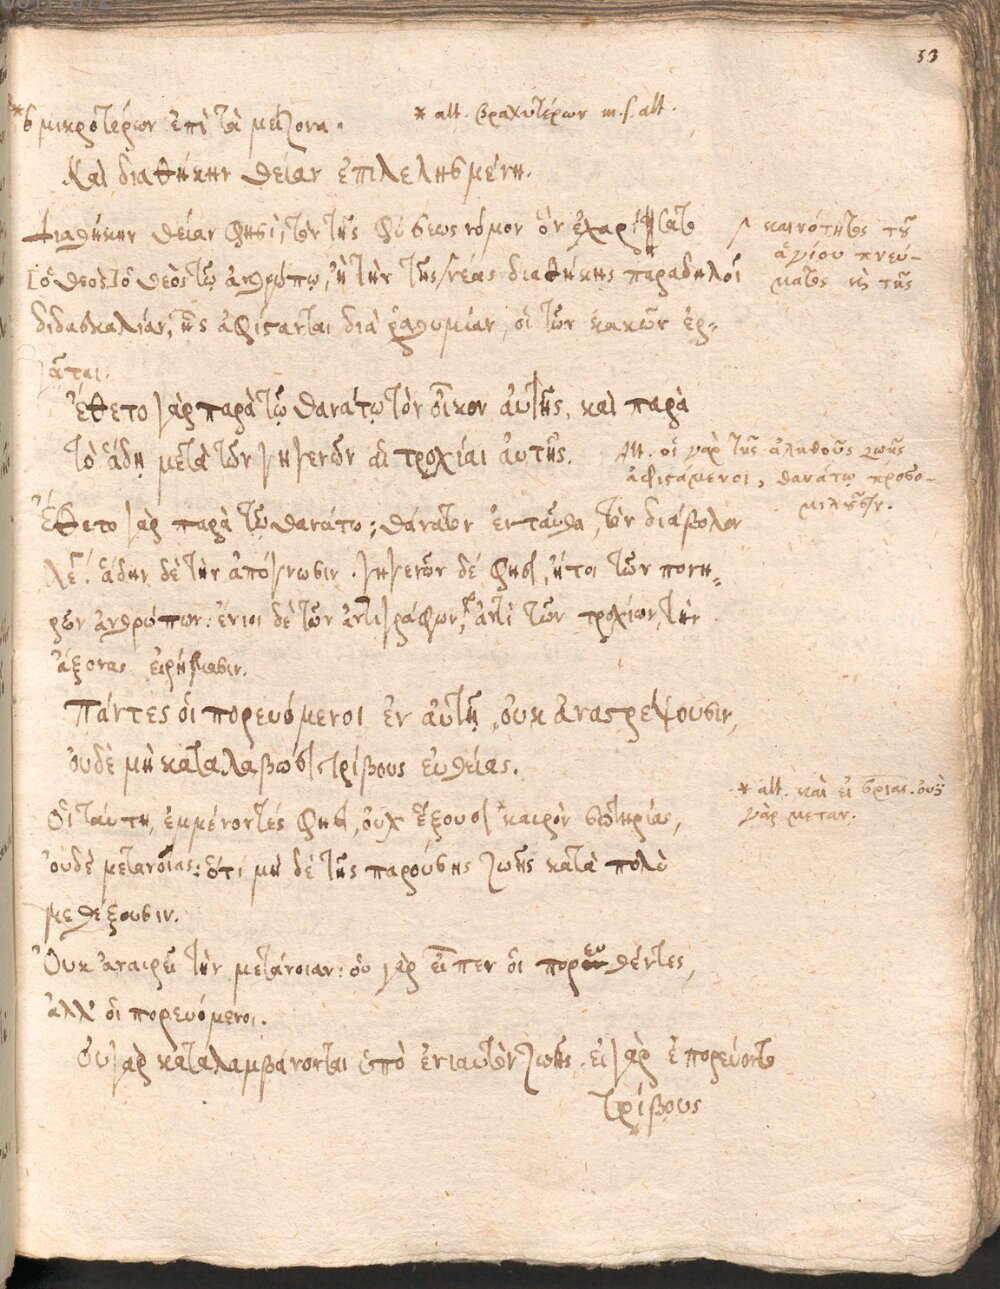 53
*ϛ μικροτέρων ἐπὶ τὰ μείζονα.
* alt. βραχυτέρων m.s. alt.
Καὶ διαθήκην θείαν ἐπιλελησμένη.
Διαθήκην θείαν φησὶ, τὸν τῆς φύσεως νόμον ὃν ἐχαρίσατο
[ὁ θεὸς] ὁ θεὸς τῷ ἀνθρώπῳ, ἢ τὴν τῆς νέας διαθήκης παραδηλοῖ
διδασκαλίαν, ἧς ἀφίστανται διὰ ῥαθυμίαν, οἱ τῶν κακῶν ἐρ-
γάται.
καινότητος τοῦ
ἁγίου πνεύ-
ματος ἐκ τῆς
Ἔθετο γὰρ παρὰ τῷ θανάτῳ τὸν οἶκον αὐτῆς, καὶ παρὰ
τῷ ἅδῃ μετὰ τῶν γηγενῶν οἱ τροχίαι αὐτῆς.
Alt. οἱ γὰρ τῆς ἀληθοῦς ζωῆς
ἀφιστάμενοι, θανάτῳ προσο-
μιλοῦσιν.
Ἔθετο γὰρ παρὰ τῷ θανάτῳ; θάνατον ἐνταῦθα, τὸν διάβολον
λέγει. ἅδην δὲ τὴν ἀπόγνωσιν. γηγενῶν δέ φησι, ἤτοι τῶν πονη-
ρῶν ἀνθρώπων: ἔνιοι δὲ τῶν ἀντιγράφων, ἀντὶ τῶν τροχίων, τὴν
ἄξονας εἰρήκασιν.
Πάντες οἱ πορευόμενοι ἐν αὐτῇ, οὐκ ἀναστρέψουσιν,
οὐδὲ μὴ καταλάβωσι τρίβους εὐθείας.
Οἱ ταύτῃ, ἐμμένοντές φησι, οὐχ ἕξουσι *καιρὸν σωτηρίας,
οὐδὲ μετανοίας: ὅτι μὴ δὲ τῆς παρούσης ζωῆς κατὰ πολὺ
μεθέξουσιν.
* alt. καὶ εἰ
γὰρ μεταν.
Οὐκ ἀναιρεῖ τὴν μετάνοιαν: οὐ γὰρ εἶπεν οἱ πορευθέντες,
ἀλλ' οἱ πορευόμενοι.
Οὐ γὰρ καταλαμβάνονται ὑπὸ ἐνιαυτῶν ζωῆς. εἰ γὰρ ἐπορεύοντο
τρίβους